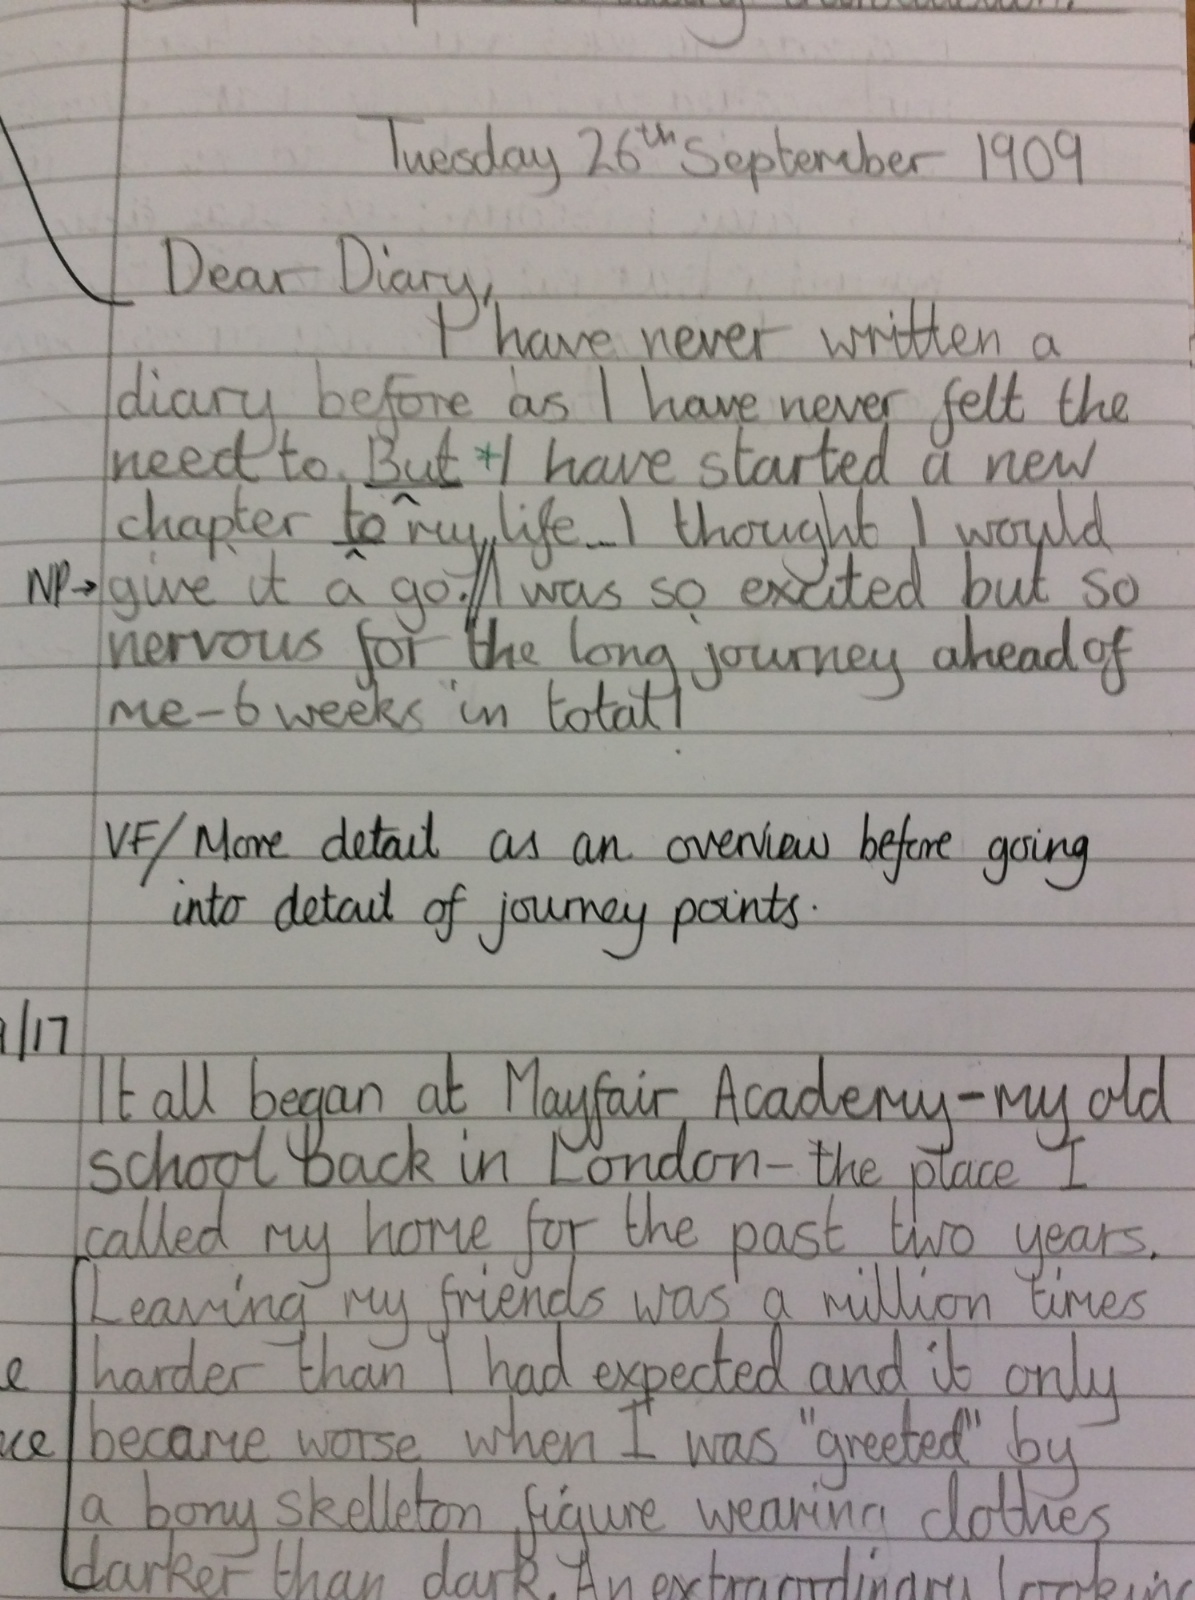 Tuesday 26th September 1909
Dear Diary,
I have never written a
diary before as I have never felt the
need to. But *I have started a new
chapter to my life_I thought I would
NP→ give it a go.// I was so excited but so
nervous for the long journey ahead of
me-6 weeks in total!
VF/ More detail as an overview before going
into detail of journey points.
/17
It all began at Mayfair Academy-my old
school back in London-the place I
called my home for the past two years.
Leaving my friends was a million times
harder than I had expected and it only
became worse when I was "greeted" by
a bony skelleton figure wearing clothes
darker than dark. An extraordinary looking